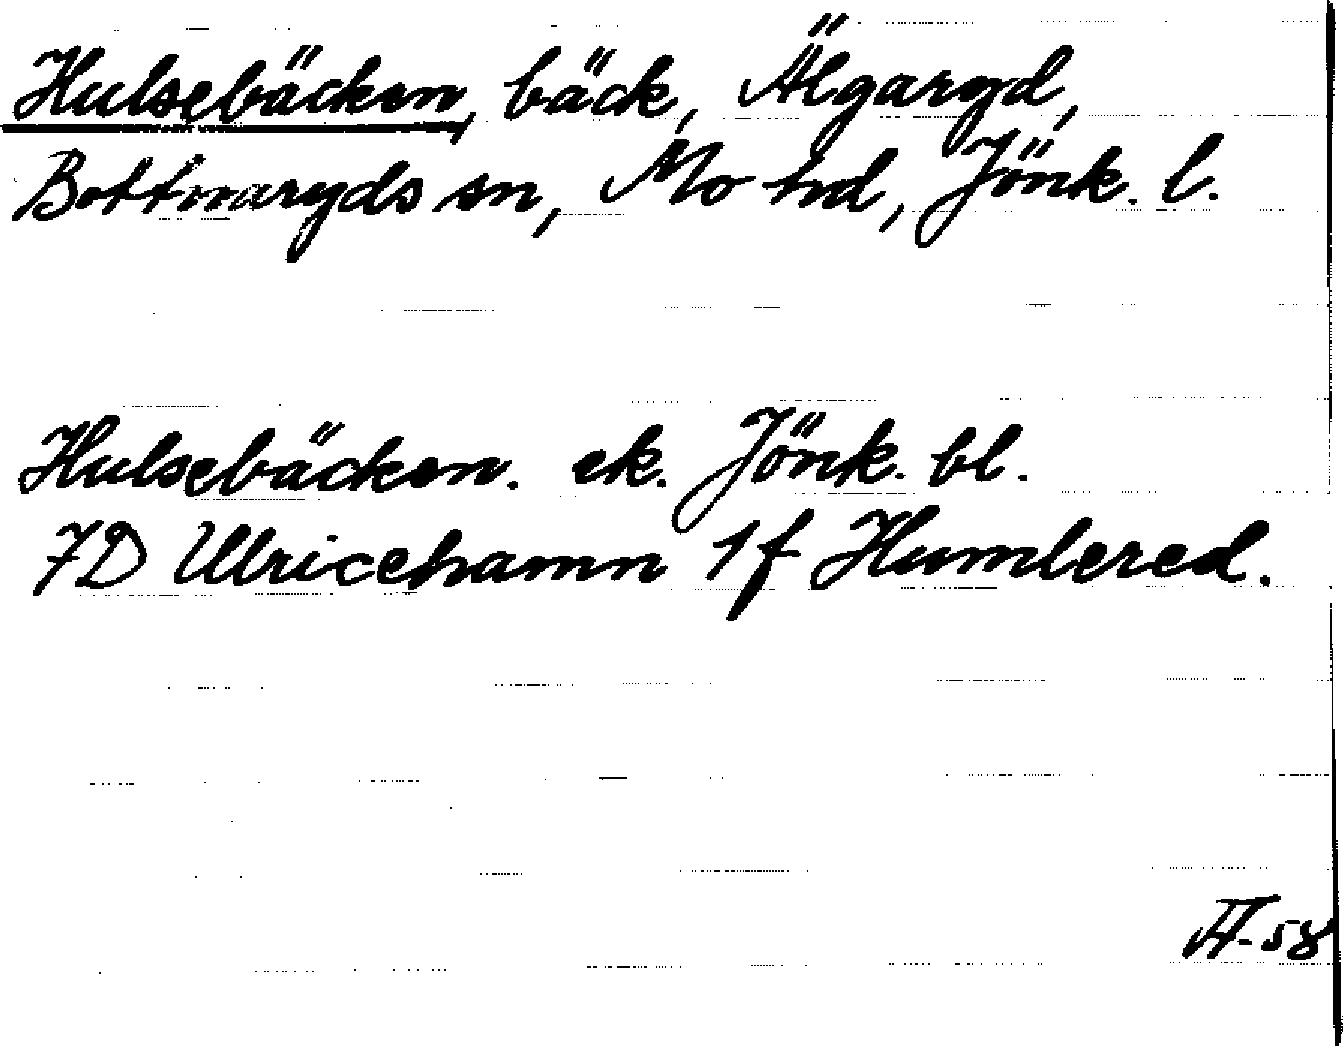 Hulsebäcken, bäck, Älgaryd,
Bottnaryds sn, Mo hd, Jönk. l.
Hulsebäcken. ek. Jönk. bl.
7D Ulricehamn 1f Humlered.
-58